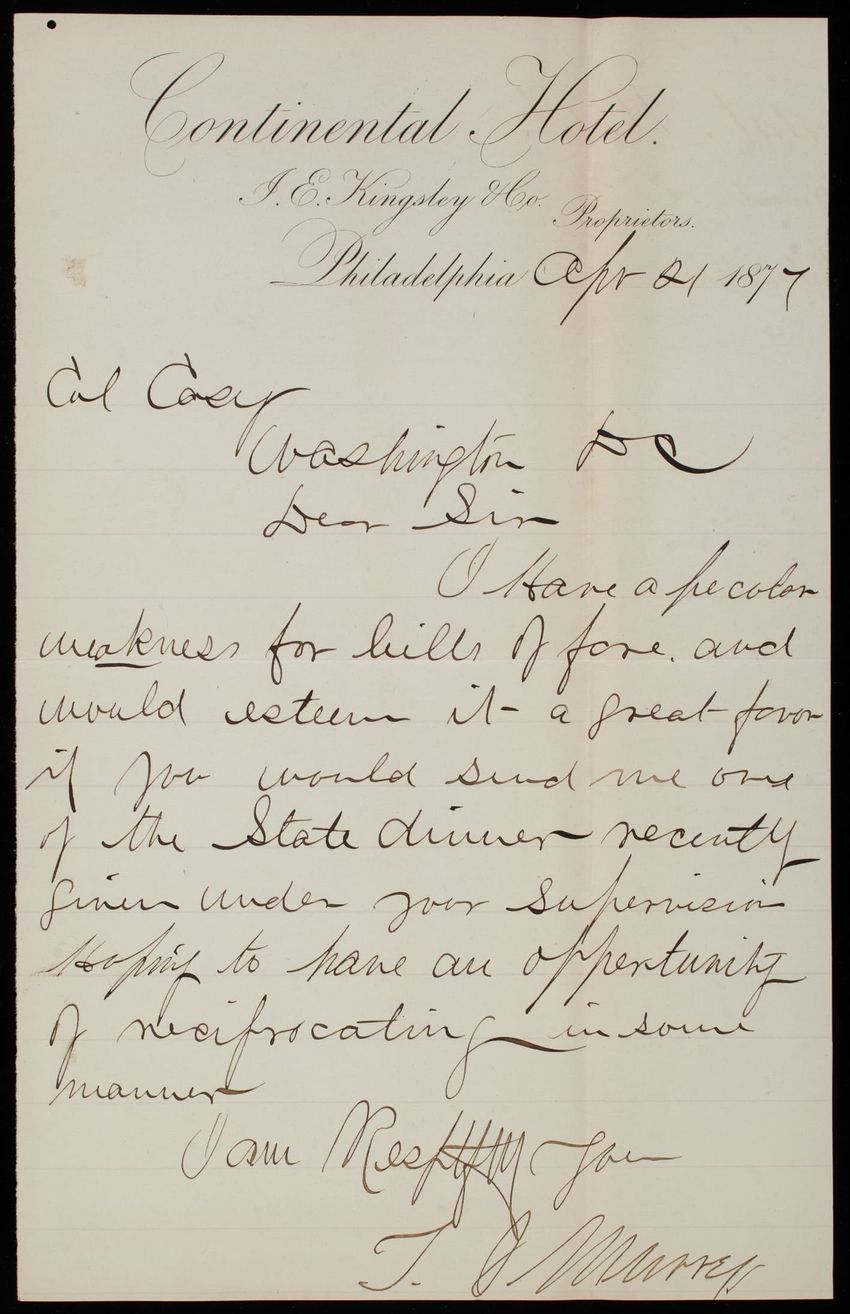 Continental Hotel.
J. E. Kingsley & Co. Proprietors.
Philadelphia Apr 21 1877
Col Casey
Washington DC
Dear Sir
I Have a pecolar
weakness for bills of fare. and
would esteem it a great favor
if you would send me one
of the State dinner recently
given under your supervision
Hoping to have an oppertunity
of reciprocating in some
manner
I am Respffly Your
T. J Murrey